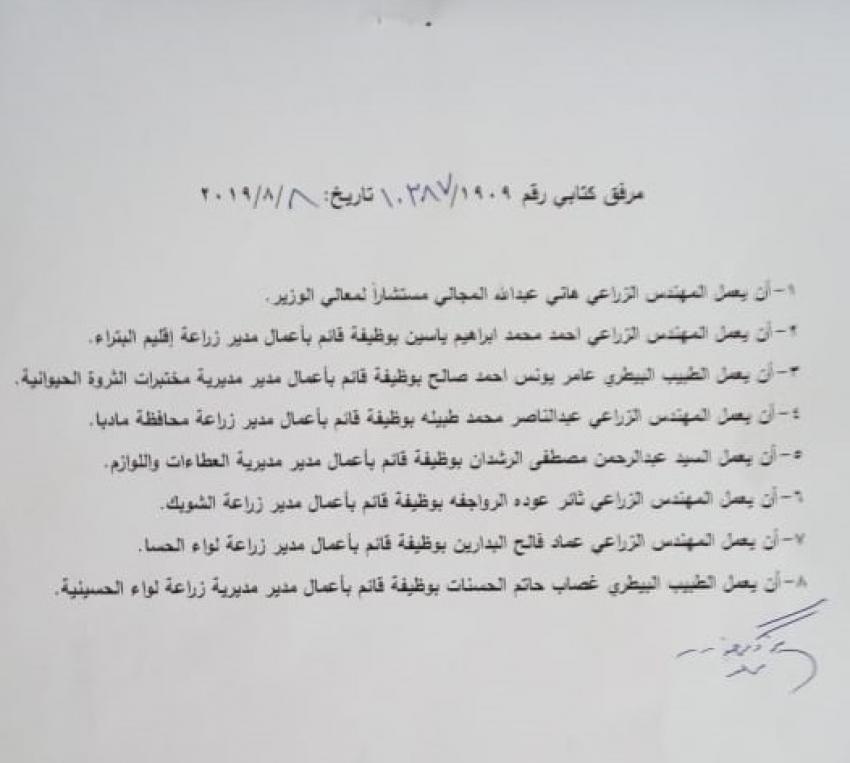 مرفق كتابي رقم ١٠٣٨٧/١٩٠٩ تاريخ: ٢٠١٩/٨/٨
١-أن يعمل المهندس الزراعي هاني عبدالله المجالي مستشاراً لمعالي الوزير.
٢-أن يعمل المهندس الزراعي احمد محمد ابراهيم ياسين بوظيفة قائم بأعمال مدير زراعة إقليم البتراء.
٣-أن يعمل الطبيب البيطري عامر يونس احمد صالح بوظيفة قائم بأعمال مدير مديرية مختبرات الثروة الحيوانية.
٤-أن يعمل المهندس الزراعي عبدالناصر محمد طبيله بوظيفة قائم بأعمال مدير زراعة محافظة مادبا.
٥-أن يعمل السيد عبدالرحمن مصطفى الرشدان بوظيفة قائم بأعمال مدير مديرية العطاءات واللوازم.
٦-أن يعمل المهندس الزراعي ثائر عوده الرواجفه بوظيفة قائم بأعمال مدير زراعة الشوبك.
٧-أن يعمل المهندس الزراعي عماد فالح البدارين بوظيفة قائم بأعمال مدير زراعة لواء الحسا.
٨-أن يعمل الطبيب البيطري غصاب حاتم الحسنات بوظيفة قائم بأعمال مدير مديرية زراعة لواء الحسينية.